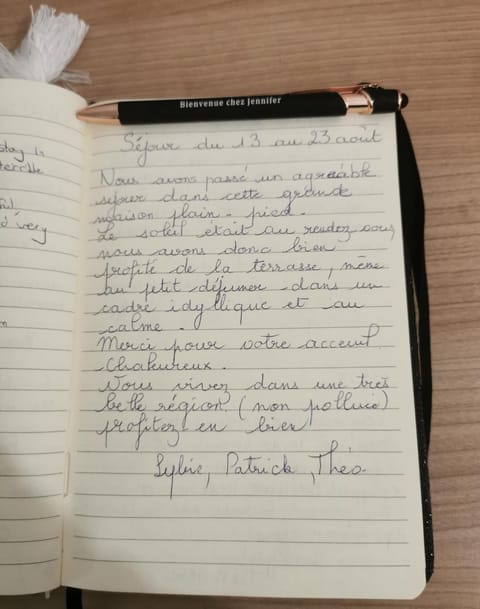 Bienvenue chez Jennifer
Séjour du 13 au 23 août
Nous avons passé un agréable
séjour dans cette grande
maison plain-pied.
Le soleil était au rendez vous,
nous avons donc bien
profité de la terrasse, même
au petit déjeuner dans un
cadre idyllique et au
calme.
Merci pour votre acceuil
chaleureux.
Vous vivez dans une très
belle région (non polluée)
profitez-en bien
Sylvie, Patrick, Théo.
stay in
terrible
very